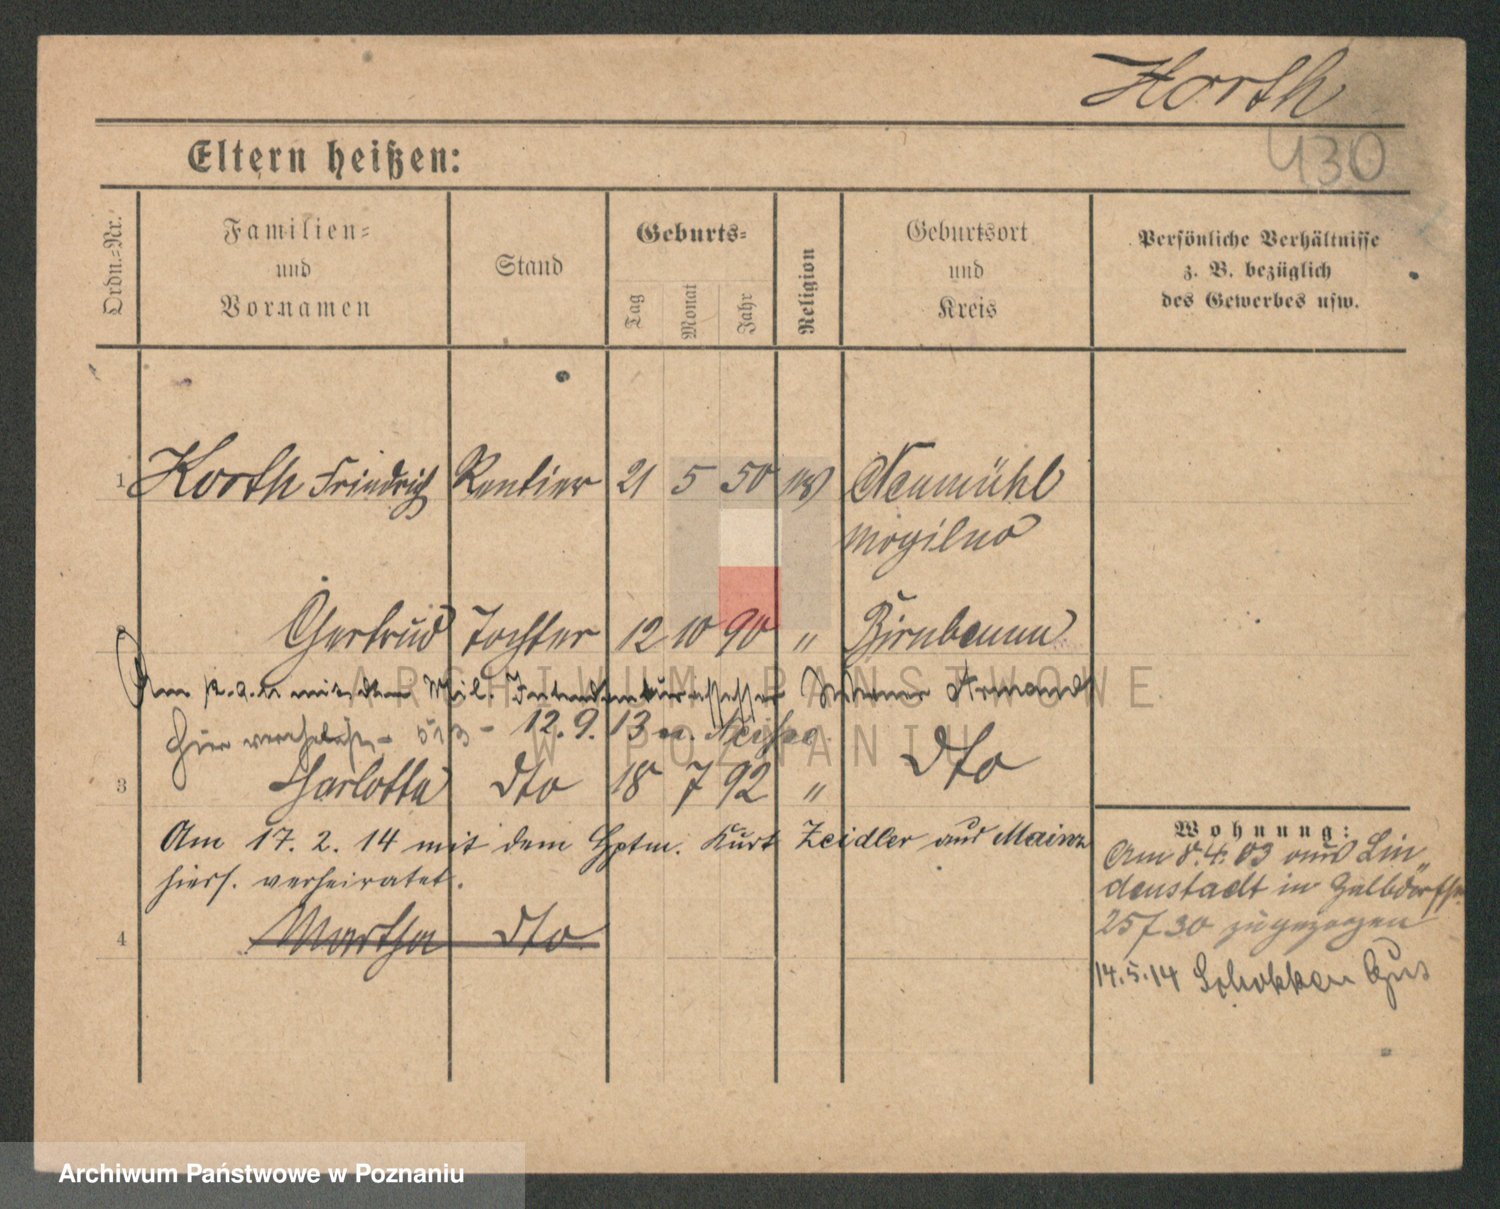 Korth
430
Eltern heißen:
Ordn.-Nr.
Familien-
und
Vornamen
Stand
Geburts-
Tag
Monat
Jahr
Religion
Geburtsort
und
Kreis
Persönliche Verhältnisse
z. B. bezüglich
des Gewerbes usw.
1 Korth Friedrich Rentier 21 5 50 Neumühl
Mogilno
Gertrud Tochter 12 10 90 " Birnbaum
ARCHIWUM PAŃSTWOWE
W POZNANIU
Am mit dem Mil. Armand
hier 12.9.13
3 Charlotte dto 18 7 92 " dto
Am 17. 2. 14 mit dem Hptm. Kurt Zeidler aus Mainz
hiers. verheiratet.
4 Martha dto
Wohnung:
Am 8.4.03 aus Lin„
denstadt in
25/30 zugezogen
14.5.14 Schokken Gut
Archiwum Państwowe w Poznaniu